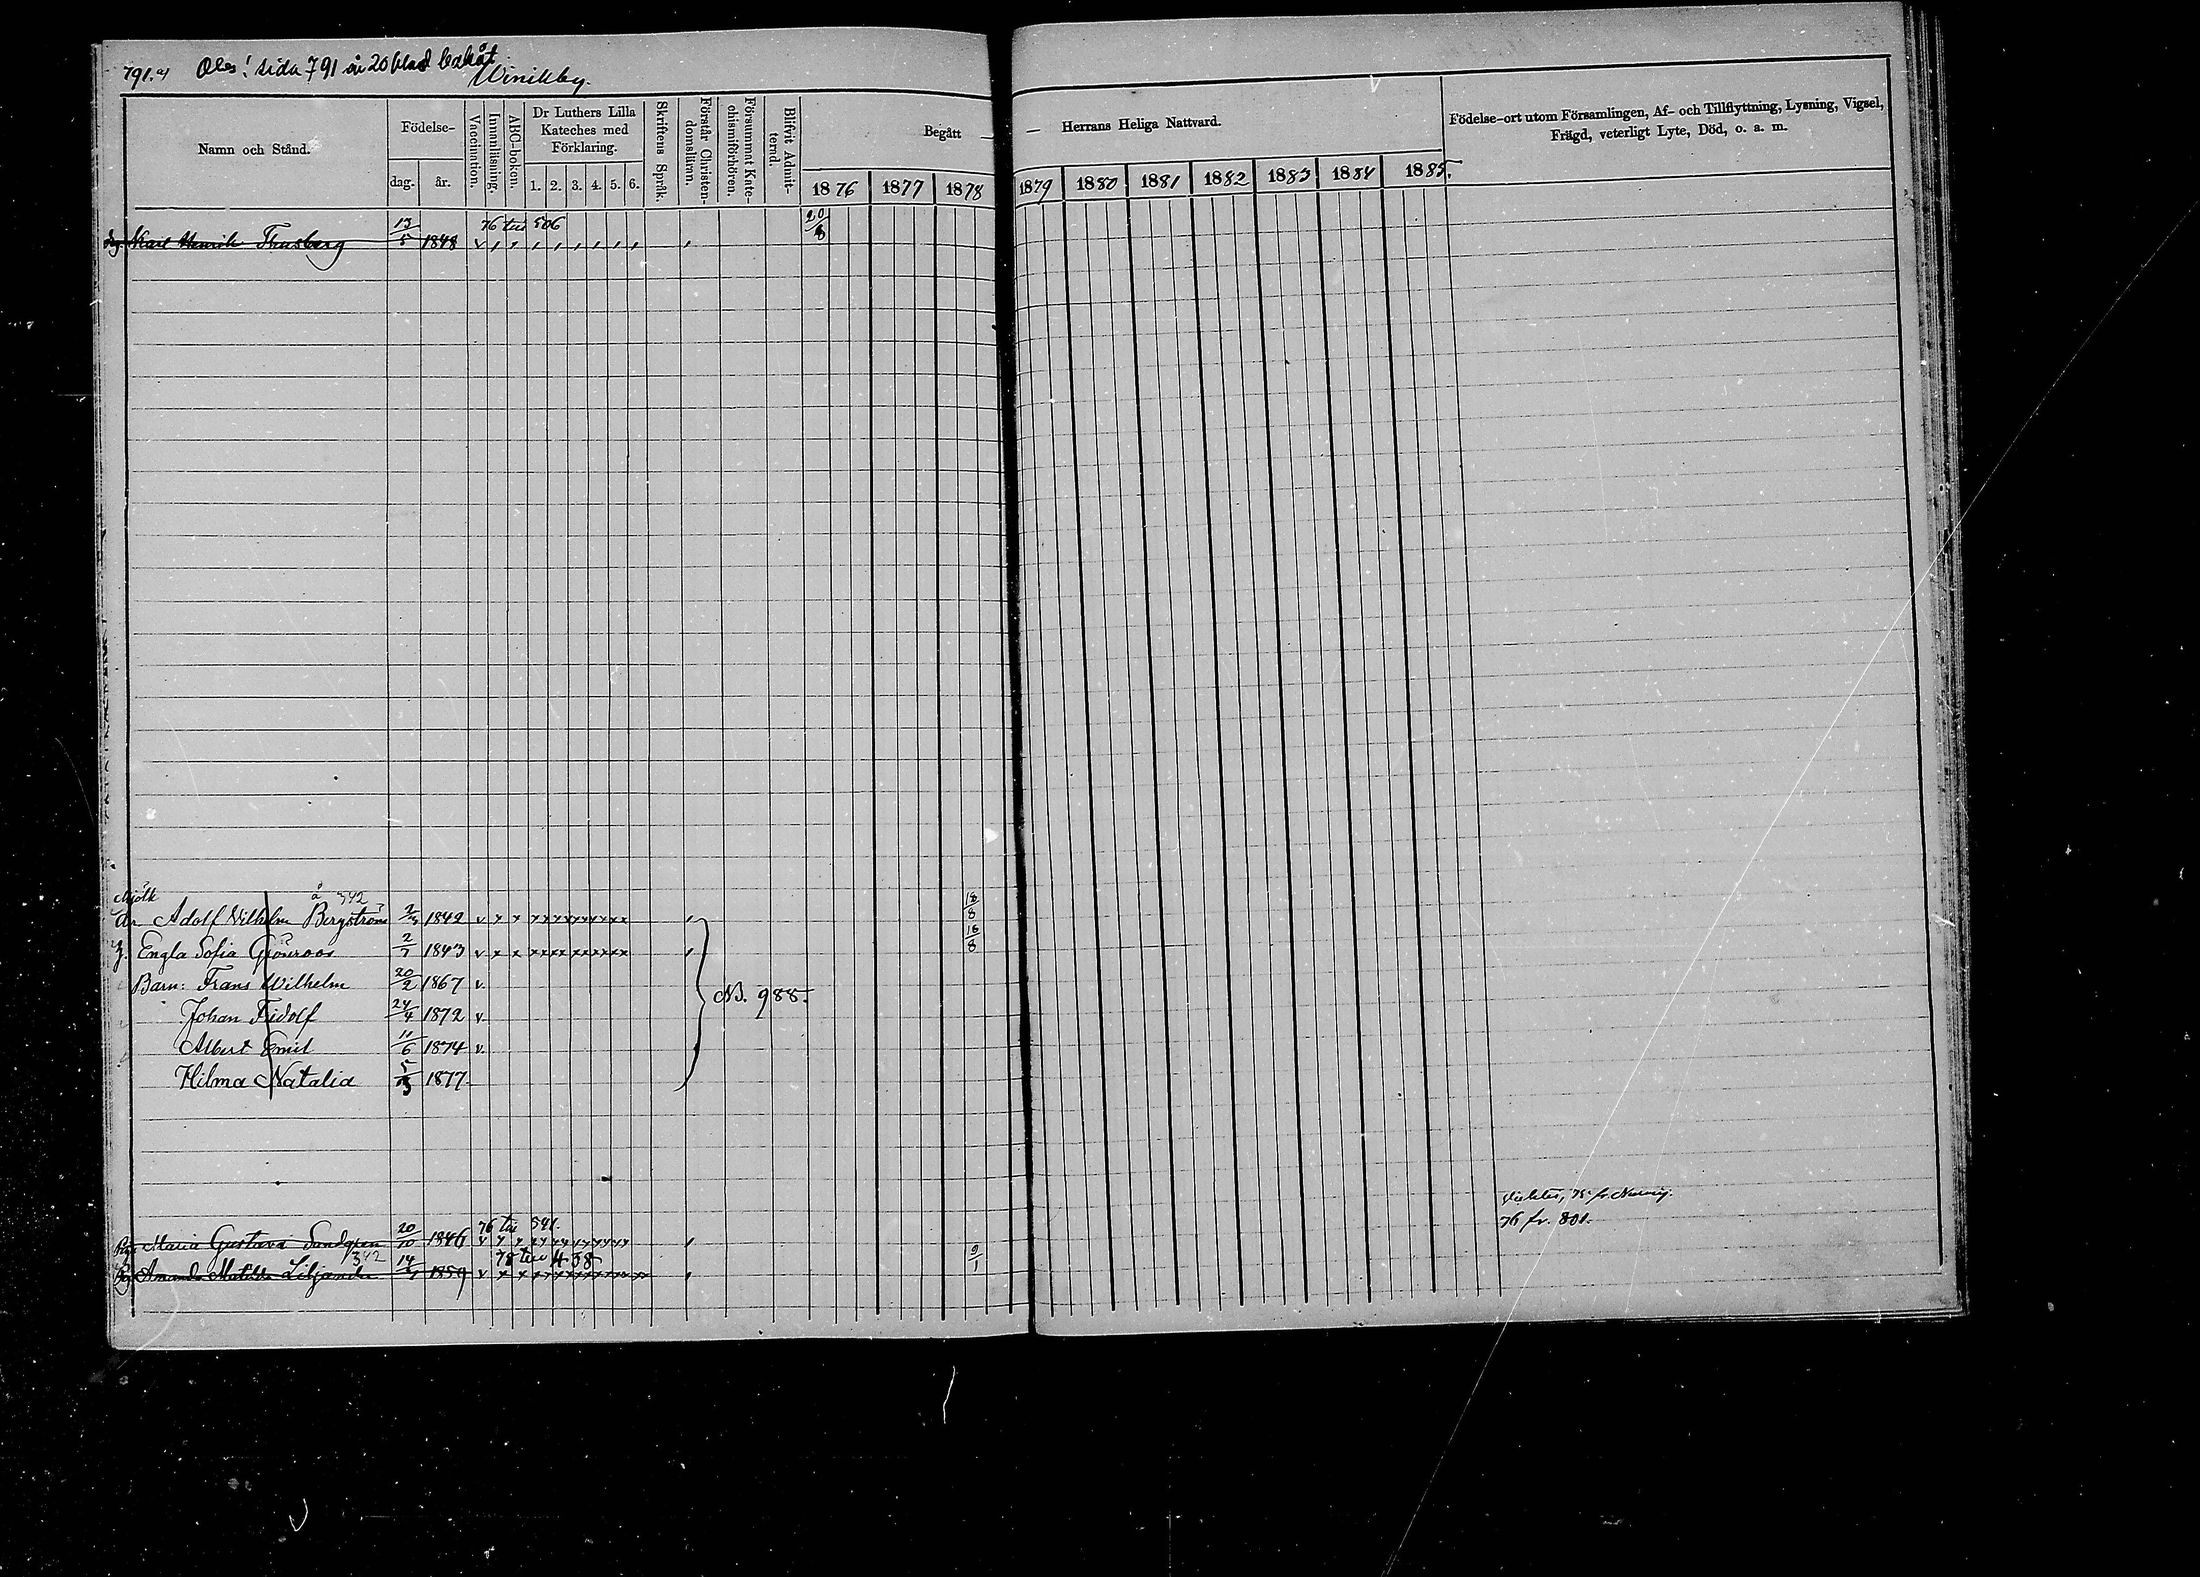 791. a) Obs! sida 791 är 20 blad bakåt
Winikby.
Namn och Stånd.
Födelse-
dag. år.
Vaccination.
Innanläsning.
ABC-boken.
Dr Luthers Lilla
Kateches med
Förklaring.
1. 2. 3. 4. 5. 6.
Skriftens Språk.
Förstår Christen-
domslüran.
Försummat Kate-
chismiförhören.
Blifvit Admit-
terad.
Begått — — Herrans Heliga Nattvard.
1876 1877 1878 1879 1880 1881 1882 1883 1884 1885.
Födelse-ort utom Församlingen, Af- och Tillflyttning, Lysning, Vigsel,
Frägd, veterligt Lyte, Död, o. a. m.
76 till 506
Karl Henrik Thusberg 13/5 1848 v 20/8
Mjölk
å 542
Adolf Wilhelm Bergström 1842 v x x xxxxxxxxxx 18/8
Engla Sofia Grönroos 2/7 1843 v x x xxxxxxxxxx 18/8
Barn: Frans Wilhelm 20/2 1867 v.
Johan Fidolf 24/4 1872 v.
Albert Emil 11/6 1874 v.
Hilma Natalia 1877.
N. 988.
75 fr.
76 till 541.
76 fr. 801.
Maria Gustava Sundgren 20/10 1846 v x x xxxxxxxxxx
342 78 till 458
Amanda Matilda Liljander 14 1859 v x x xxxxxxxxxxxx 9/1